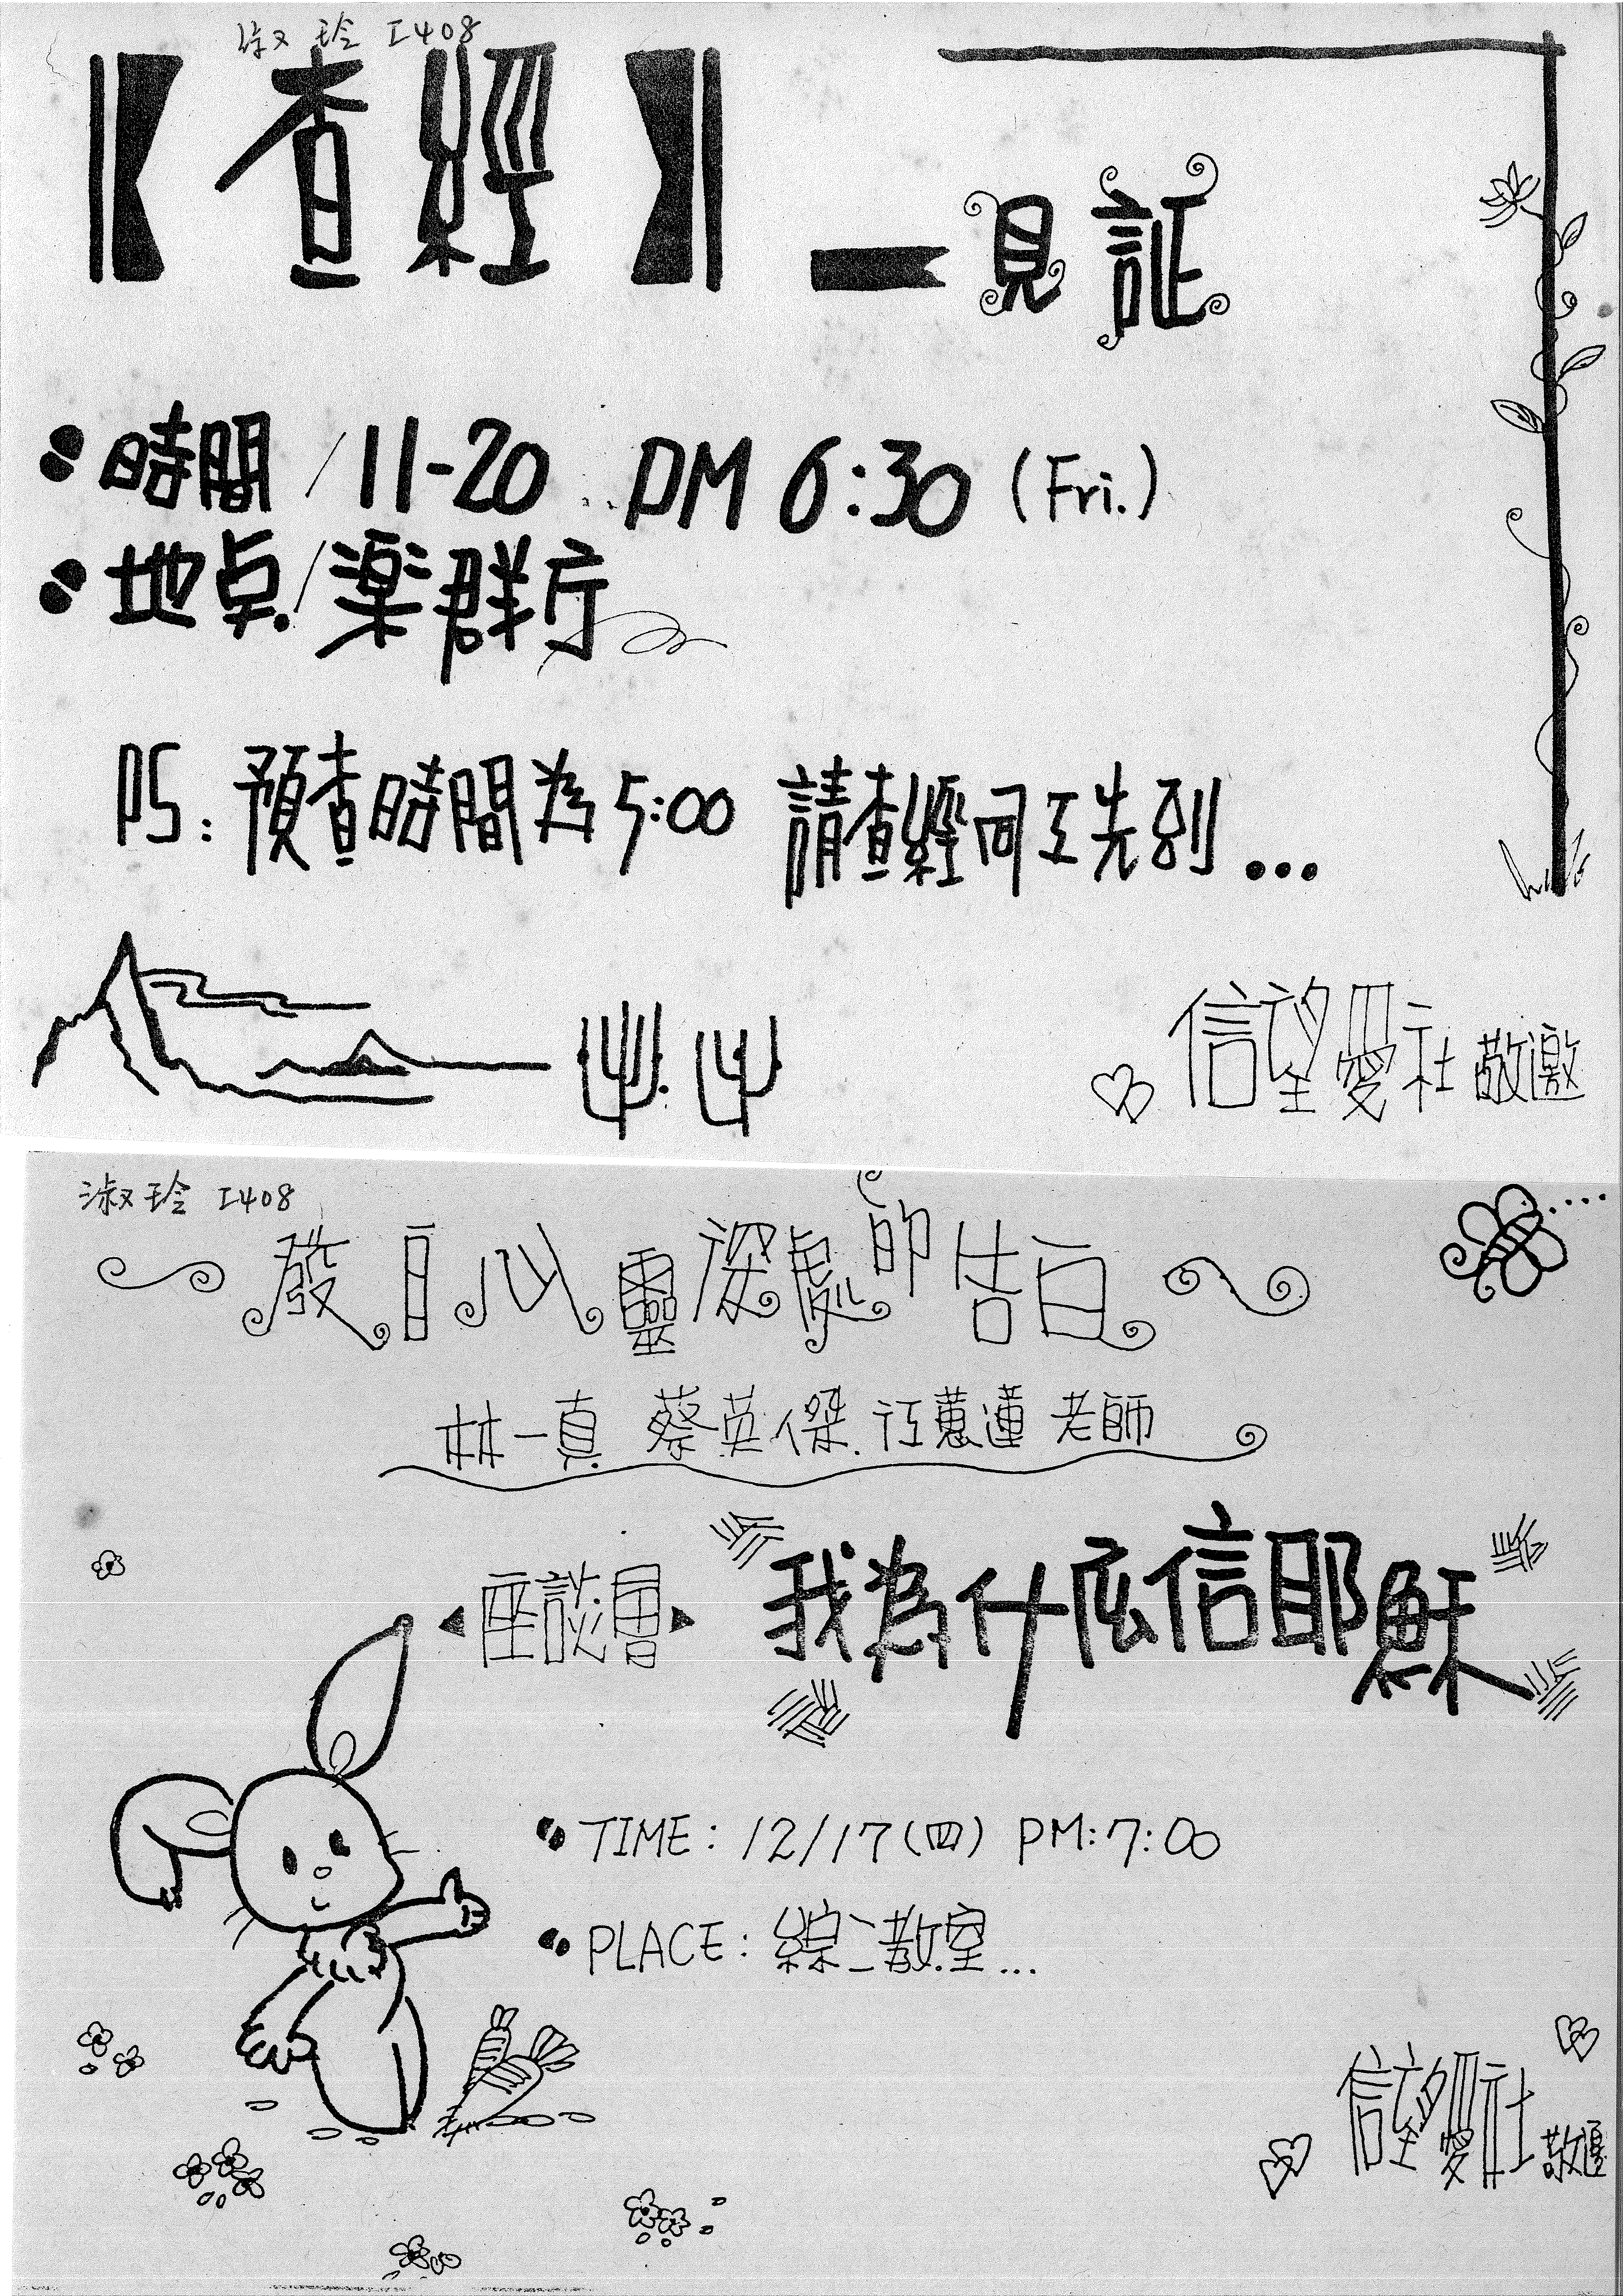 淑玲 I408
【查經】—見証
時間/11-20 PM 6:30 (Fri.)
地点/楽群庁
PS: 預查時間為5:00 請查經同工先到...
信望愛社 敬邀
淑玲 I408
~發自心靈深處的告白~
林一真 蔡英傑 江蕙蓮 老師
座談會 我為什庅信耶穌
TIME: 12/17(四) PM:7:00
PLACE: 綜二教室...
信望愛社 敬邀